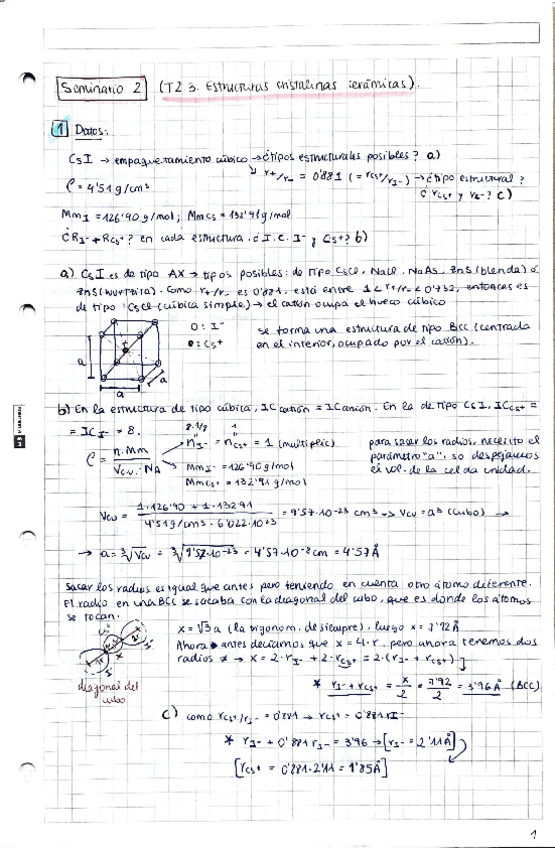 Seminario 2 (T2 3. Estructuras cristalinas cerámicas).
1 Datos:
CsI → empaquetamiento cúbico → ¿tipos estructurales posibles? a)
↳ r+/r- = 0'881 (= rCs+/rI-) → ¿tipo estructural?
ρ = 4'51 g/cm³ ¿rCs+ y rI-? c)
MmI = 126'90 g/mol; MmCs = 132'91 g/mol
¿RI- + RCs+? en cada estructura. ¿I.C. I- y Cs+? b)
a) CsI es de tipo AX → tipos posibles: de tipo CsCl, NaCl, NaAs, ZnS (blenda) ó
ZnS (wurtzita). Como r+/r- es 0'881, está entre 1 < r+/r- < 0'732, entonces es
de tipo CsCl (cúbica simple) → el catión ocupa el hueco cúbico
O: I-
●: Cs+
se forma una estructura de tipo BCC (centrada
en el interior, ocupado por el catión).
a
a
a
b) En la estructura de tipo cúbica, IC catión = IC anión. En la de tipo CsI, ICCs+ =
= ICI- = 8.
8·1/8 1
ρ = n·Mm / VCU·NA
nI- = nCs+ = 1 (multiplic)
MmI- = 126'90 g/mol
MmCs+ = 132'91 g/mol
para sacar los radios, necesito el
parámetro "a", so despejamos
el vol. de la celda unidad.
VCU = 1·126'90 + 1·132'91 / 4'51 g/cm³ · 6'022·10²³ = 9'57·10-23 cm³ → VCU = a³ (cubo) →
→ a = ³√VCU = ³√9'57·10-23 = 4'57·10-8 cm = 4'57 Å
Sacar los radios es igual que antes pero teniendo en cuenta otro átomo diferente.
El radio en una BCC se sacaba con la diagonal del cubo, que es donde los átomos
se tocan.
x = √3 a (la trigonom. de siempre), luego x = 7'92 Å
Ahora antes decíamos que x = 4·r, pero ahora tenemos dos
radios ≠ → x = 2·rI- + 2·rCs+ = 2·(rI- + rCs+)
diagonal del
cubo
* rI- + rCs+ = x/2 = 7'92/2 = 3'96 Å (BCC)
c) como rCs+/rI- = 0'881 → rCs+ = 0'881 rI-
* rI- + 0'881 rI- = 3'96 → [rI- = 2'11 Å]
[rCs+ = 0'881·2'11 = 1'85 Å]
1